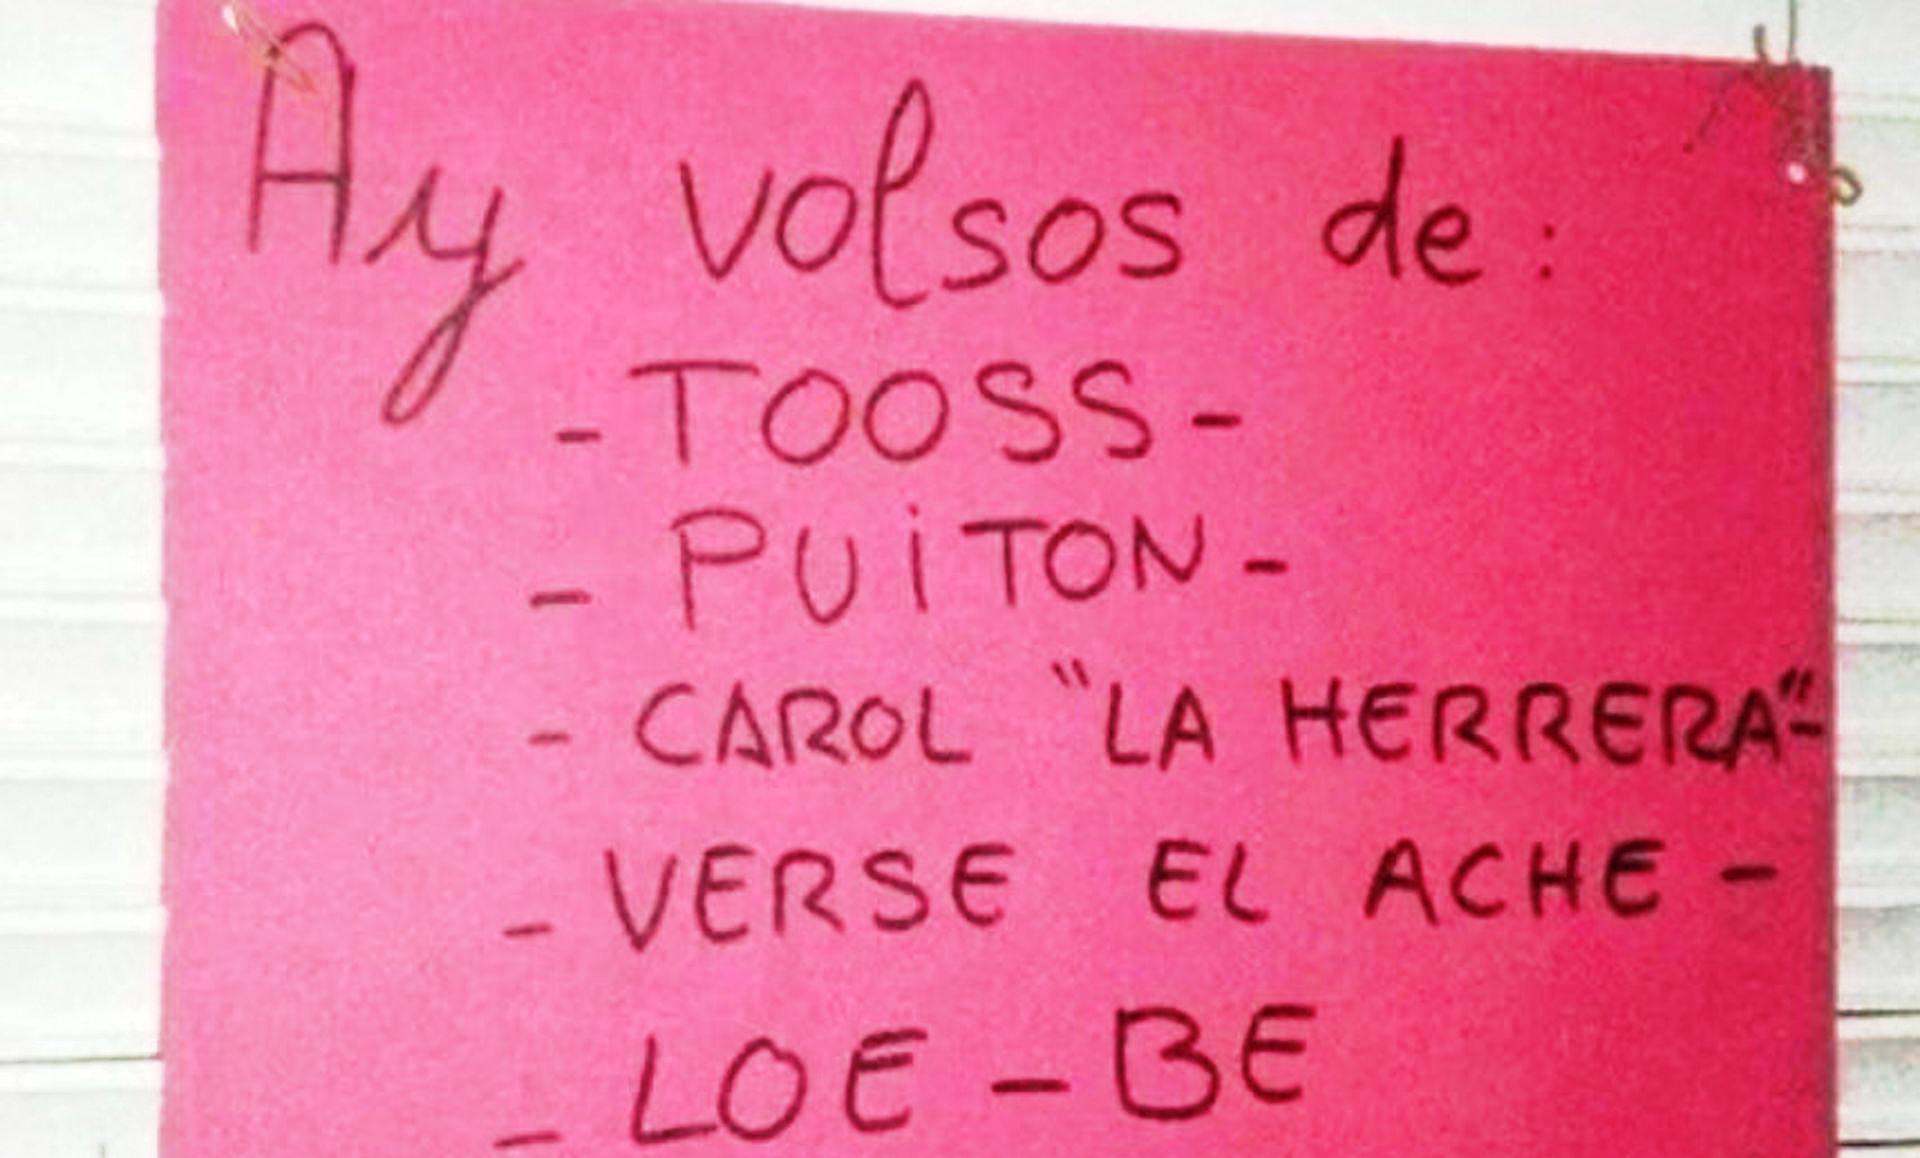 Ay volsos de:
-TOOSS-
- PUiTON-
- CAROL "LA HERRERA"-
- VERSE EL ACHE -
- LOE - BE